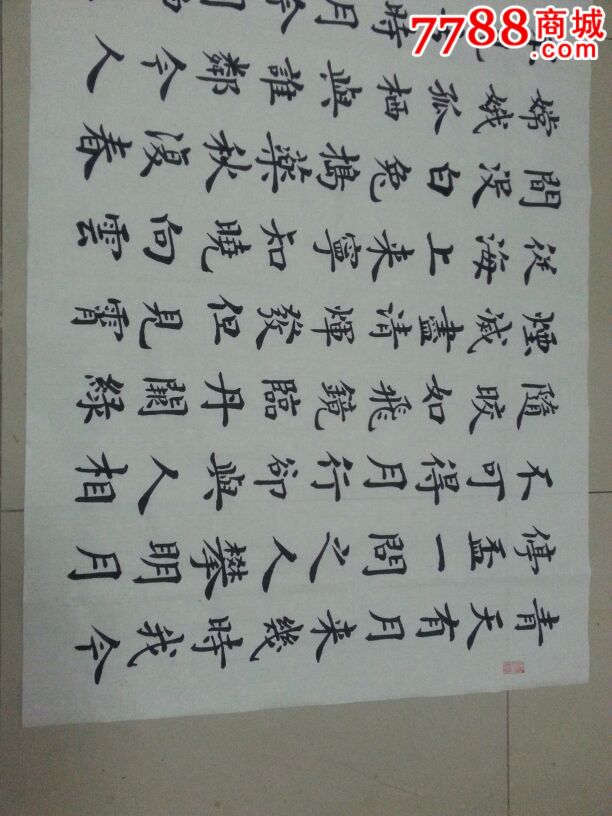 7788商城
.com
青天有月来幾時我今
停盃一問之人攀明月
不可得月行卻與人相
隨皎如飛鏡臨丹闕緑
煙滅盡清輝發但見霄
從海上来寧知曉向雲
間没白兔搗藥秋復春
嫦娥孤栖與誰鄰今人
時月今